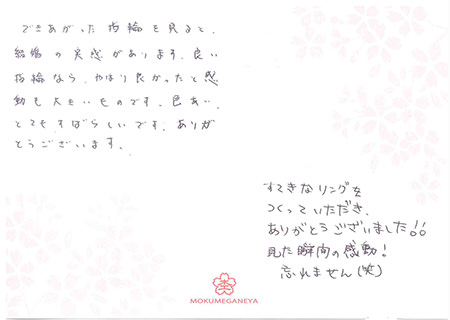 できあがった指輪を見ると、
結婚の実感があります。良い
指輪なら、やはり良かったと感
動も大きいものです。色あい、
とてもすばらしいです。ありが
とうございます。
すてきなリングを
つくっていただき、
ありがとうございました!!
見た瞬間の感動!
忘れません(笑)
MOKUMEGANEYA